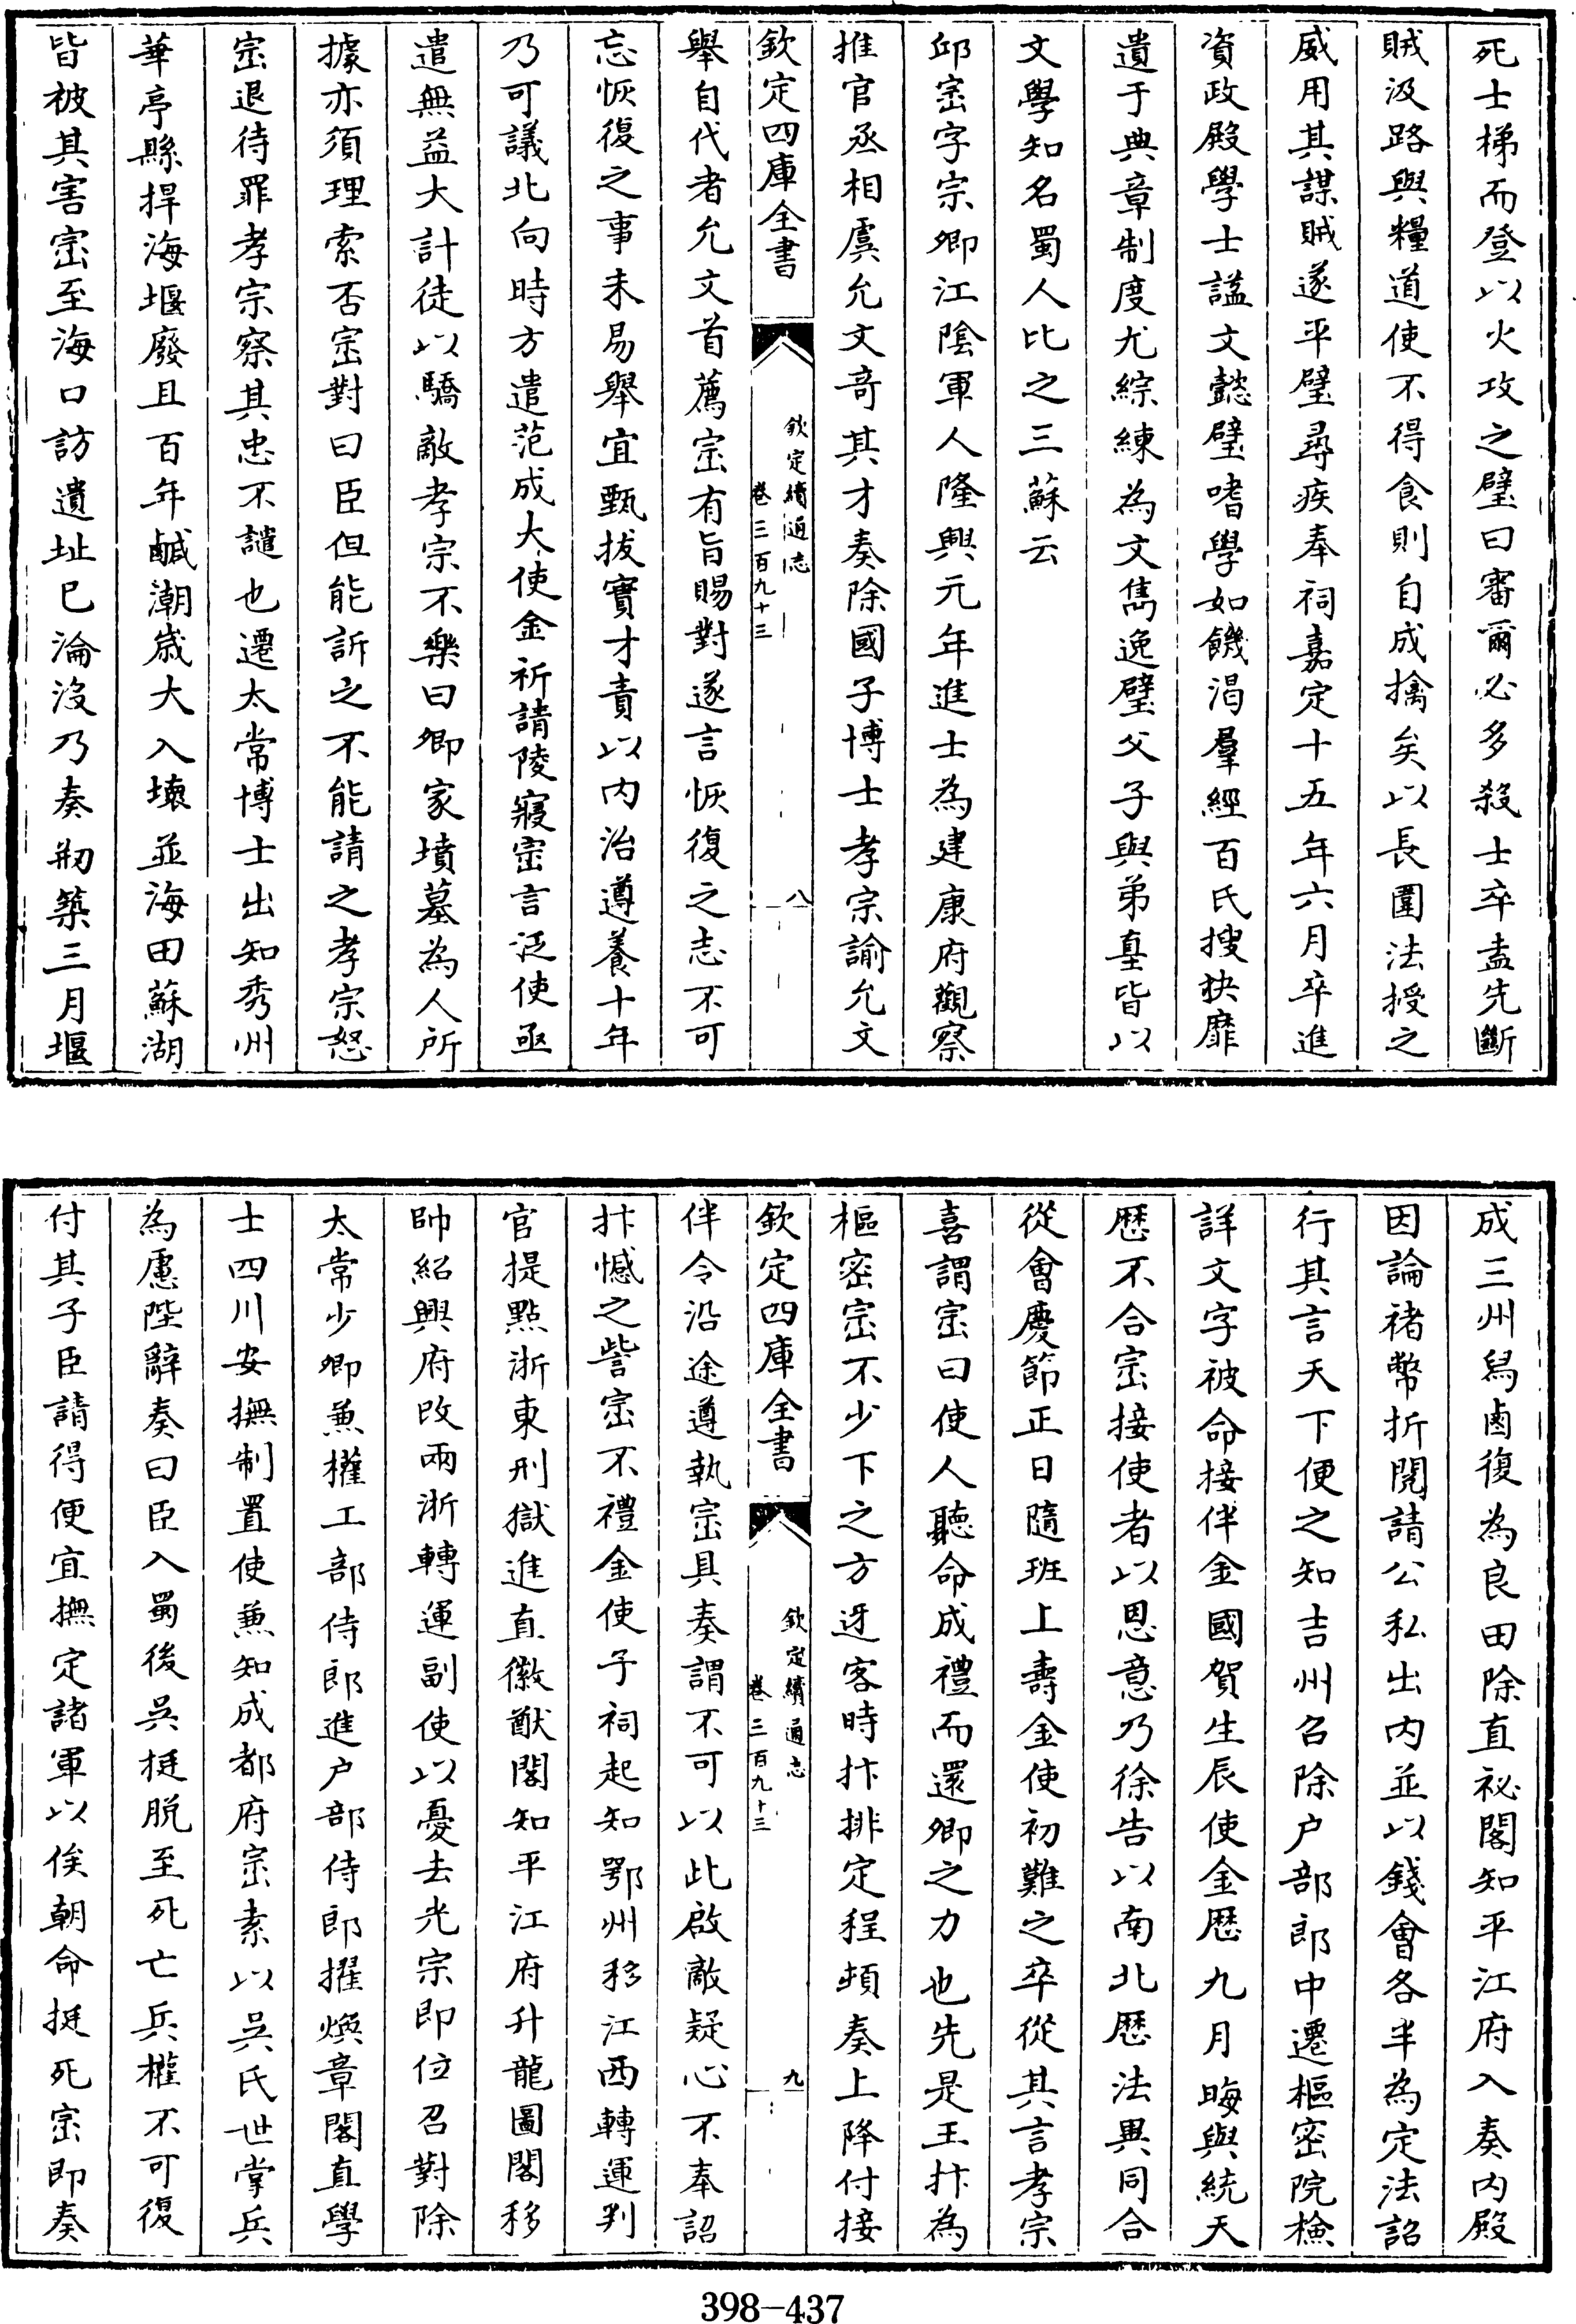 死士梯而登以火攻之璧曰審爾必多殺士卒盍先斷
賊汲路與糧道使不得食則自成擒矣以長圍法授之
威用其謀賊遂平璧尋疾奉祠嘉定十五年六月卒進
資政殿學士諡文懿璧嗜學如饑渴羣經百氏搜抉靡
遺于典章制度尤綜練為文雋逸璧父子與弟㙷皆以
文學知名蜀人比之三蘇云
邱崈字宗卿江陰軍人隆興元年進士為建康府觀察
推官丞相虞允文奇其才奏除國子博士孝宗諭允文
欽定四庫全書
欽定續通志
卷三百九十三
八
舉自代者允文首薦崈有旨賜對遂言恢復之志不可
忘恢復之事未易舉宜甄拔實才責以內治遵養十年
乃可議北向時方遣范成大使金祈請陵寢崈言泛使亟
遣無益大計徒以驕敵孝宗不樂曰卿家墳墓為人所
據亦須理索否崈對曰臣但能訴之不能請之孝宗怒
崈退待罪孝宗察其忠不譴也遷太常博士出知秀州
華亭縣捍海堰廢且百年鹹潮歲大入壞並海田蘇湖
皆被其害崈至海口訪遺址已淪沒乃奏剏築三月堰
成三州舄鹵復為良田除直祕閣知平江府入奏內殿
因論褚幣折閱請公私出內並以錢會各半為定法詔
行其言天下便之知吉州召除户部郎中遷樞密院檢
詳文字被命接伴金國賀生辰使金歴九月晦與統天
歴不合崈接使者以恩意乃徐告以南北歴法異同合
從會慶節正日隨班上壽金使初難之卒從其言孝宗
喜謂崈曰使人聽命成禮而還卿之力也先是王抃為
樞密崈不少下之方迓客時抃排定程頓奏上降付接
欽定四庫全書
欽定續通志
卷三百九十三
九
伴令沿途遵執崈具奏謂不可以此啟敵疑心不奉詔
抃憾之訾崈不禮金使予祠起知鄂州移江西轉運判
官提點浙東刑獄進直徽猷閣知平江府升龍圖閣移
帥紹興府改兩浙轉運副使以憂去光宗即位召對除
太常少卿兼權工部侍郎進户部侍郎擢煥章閣直學
士四川安撫制置使兼知成都府崈素以吳氏世掌兵
為慮陛辭奏曰臣入蜀後吳挺脫至死亡兵權不可復
付其子臣請得便宜撫定諸軍以俟朝命挺死崈即奏
398-437